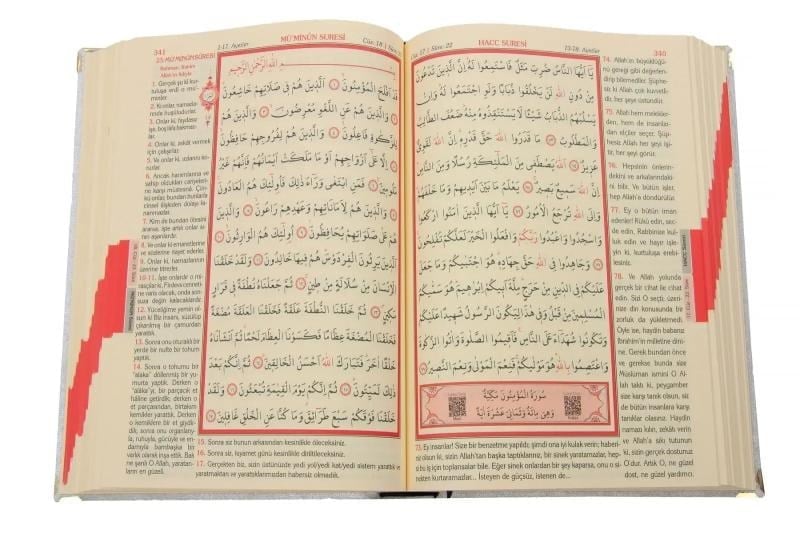 Cüz: 17 | Sûre: 22 HACC SURESİ 73-78. Ayetler 340
يَا أَيُّهَا النَّاسُ ضُرِبَ مَثَلٌ فَاسْتَمِعُوا لَهُ إِنَّ الَّذِينَ تَدْعُونَ
مِنْ دُونِ اللهِ لَنْ يَخْلُقُوا ذُبَابًا وَلَوِ اجْتَمَعُوا لَهُ وَإِنْ
يَسْلُبْهُمُ الذُّبَابُ شَيْئًا لَا يَسْتَنْقِذُوهُ مِنْهُ ضَعُفَ الطَّالِبُ
وَالْمَطْلُوبُ ﴿٧٣﴾ مَا قَدَرُوا اللهَ حَقَّ قَدْرِهِ إِنَّ اللهَ لَقَوِيٌّ
عَزِيزٌ ﴿٧٤﴾ اللهُ يَصْطَفِي مِنَ الْمَلٰئِكَةِ رُسُلًا وَمِنَ النَّاسِ
إِنَّ اللهَ سَمِيعٌ بَصِيرٌ ﴿٧٥﴾ يَعْلَمُ مَا بَيْنَ أَيْدِيهِمْ وَمَا خَلْفَهُمْ
وَإِلَى اللهِ تُرْجَعُ الْأُمُورُ ﴿٧٦﴾ يَا أَيُّهَا الَّذِينَ آمَنُوا ارْكَعُوا
وَاسْجُدُوا وَاعْبُدُوا رَبَّكُمْ وَافْعَلُوا الْخَيْرَ لَعَلَّكُمْ تُفْلِحُونَ
﴿٧٧﴾ وَجَاهِدُوا فِي اللهِ حَقَّ جِهَادِهِ هُوَ اجْتَبٰيكُمْ وَمَا جَعَلَ
عَلَيْكُمْ فِي الدِّينِ مِنْ حَرَجٍ مِلَّةَ أَبِيكُمْ إِبْرٰهِيمَ هُوَ سَمّٰيكُمُ
الْمُسْلِمِينَ مِنْ قَبْلُ وَفِي هٰذَا لِيَكُونَ الرَّسُولُ شَهِيدًا عَلَيْكُمْ
وَتَكُونُوا شُهَدَاءَ عَلَى النَّاسِ فَأَقِيمُوا الصَّلٰوةَ وَآتُوا الزَّكٰوةَ
وَاعْتَصِمُوا بِاللهِ هُوَ مَوْلٰيكُمْ فَنِعْمَ الْمَوْلٰى وَنِعْمَ النَّصِيرُ ﴿٧٨﴾
سُورَةُ الْمُؤْمِنُونَ مَكِّيَّةٌ
وَهِيَ مِائَةٌ وَثَمَانِيَ عَشْرَةَ آيَةً
74. Allah'ın büyüklüğü-
nü gereği gibi değerlen-
dirip bilemediler. Şüp-
hesiz ki Allah çok kuvvetli-
dir, her şeye üstündür.
75. Allah hem melekler-
den, hem de insanlar-
dan elçiler seçer. Şüp-
hesiz Allah her şeyi işi-
tir, her şeyi görür.
76. Hepsinin önlerin-
dekini ve arkalarındaki-
ni bilir. Ve bütün işler,
hep Allah'a döndürülür.
77. Ey o bütün iman
edenler! Rükû edin, sec-
de edin, Rabbinize kul-
luk edin ve hayır işle-
yin ki, kurtuluşa erebi-
lesiniz.
78. Ve Allah yolunda
gerçek bir cihat ile cihat
edin. Sizi O seçti, üzeri-
nize din konusunda bir
zorluk da yükletmedi.
Öyle ise, haydin babanız
İbrahim'in milletine dini-
ne. Gerek bundan önce
ve gerekse bunda size
Müslüman ismini O Al-
lah taktı ki, peygamber
size karşı tanık olsun, siz
de bütün insanlara karşı
tanıklar olasınız. Haydin
namazı kılın, zekâtı verin
ve Allah'a sıkı tutunun
ki, sizin gerçek dostunuz
O'dur. Artık O, ne güzel
dost, ne güzel yardımcı.
73. Ey insanlar! Size bir benzetme yapıldı; şimdi ona iyi kulak verin; haberi-
niz olsun ki, sizin Allah'tan başka taptıklarınız, bir sinek yaratamazlar, hep-
si bu iş için toplansalar bile. Eğer sinek onlardan bir şey kaparsa, onu o si-
nekten kurtaramazlar... İsteyen de güçsüz, istenen de...
HACC Suresi
17. Cüz - 22. Sûre
341 1-17. Ayetler MÜ'MİNÛN SURESİ Cüz: 18 | Sûre:
بِسْمِ اللهِ الرَّحْمٰنِ الرَّحِيمِ
قَدْ أَفْلَحَ الْمُؤْمِنُونَ ﴿١﴾ الَّذِينَ هُمْ فِي صَلَاتِهِمْ خَاشِعُونَ
﴿٢﴾ وَالَّذِينَ هُمْ عَنِ اللَّغْوِ مُعْرِضُونَ ﴿٣﴾ وَالَّذِينَ هُمْ
لِلزَّكٰوةِ فَاعِلُونَ ﴿٤﴾ وَالَّذِينَ هُمْ لِفُرُوجِهِمْ حَافِظُونَ
﴿٥﴾ إِلَّا عَلٰى أَزْوَاجِهِمْ أَوْ مَا مَلَكَتْ أَيْمَانُهُمْ فَإِنَّهُمْ غَيْرُ
مَلُومِينَ ﴿٦﴾ فَمَنِ ابْتَغٰى وَرَاءَ ذٰلِكَ فَأُولٰئِكَ هُمُ الْعَادُونَ
﴿٧﴾ وَالَّذِينَ هُمْ لِأَمَانَاتِهِمْ وَعَهْدِهِمْ رَاعُونَ ﴿٨﴾ وَالَّذِينَ
هُمْ عَلٰى صَلَوَاتِهِمْ يُحَافِظُونَ ﴿٩﴾ أُولٰئِكَ هُمُ الْوَارِثُونَ ﴿١٠﴾
الَّذِينَ يَرِثُونَ الْفِرْدَوْسَ هُمْ فِيهَا خَالِدُونَ ﴿١١﴾ وَلَقَدْ خَلَقْنَا
الْإِنْسَانَ مِنْ سُلَالَةٍ مِنْ طِينٍ ﴿١٢﴾ ثُمَّ جَعَلْنَاهُ نُطْفَةً فِي قَرَارٍ
مَكِينٍ ﴿١٣﴾ ثُمَّ خَلَقْنَا النُّطْفَةَ عَلَقَةً فَخَلَقْنَا الْعَلَقَةَ مُضْغَةً
فَخَلَقْنَا الْمُضْغَةَ عِظَامًا فَكَسَوْنَا الْعِظَامَ لَحْمًا ثُمَّ أَنْشَأْنَاهُ
خَلْقًا آخَرَ فَتَبَارَكَ اللهُ أَحْسَنُ الْخَالِقِينَ ﴿١٤﴾ ثُمَّ إِنَّكُمْ بَعْدَ
ذٰلِكَ لَمَيِّتُونَ ﴿١٥﴾ ثُمَّ إِنَّكُمْ يَوْمَ الْقِيٰمَةِ تُبْعَثُونَ ﴿١٦﴾ وَلَقَدْ
خَلَقْنَا فَوْقَكُمْ سَبْعَ طَرَائِقَ وَمَا كُنَّا عَنِ الْخَلْقِ غَافِلِينَ ﴿١٧﴾
23: MÜ'MİNÛN SURESİ
Rahman, Rahim
Allah'ın Adıyla
1. Gerçek şu ki kur-
tuluşa erdi o mü'-
minler.
2. Ki onlar, namazla-
rında huşûludurlar.
3. Onlar ki, faydasız
işe, boş lafa bakmaz-
lar.
4. Onlar ki, zekât vermek
için çalışırlar.
5. Ve onlar ki, ırzlarını ko-
rurlar.
6. Ancak hanımlarına ve
sahip oldukları cariyeleri-
ne karşı müstesna. Çün-
kü onlar, bundan dolayı kı-
nanmazlar.
7. Kim de bundan ötesini
ararsa, işte artık onlar sı-
nırı aşanlardır.
8. Ve onlar ki emanetlerine
ve sözlerine riayet ederler.
9. Onlar ki, namazlarının
üzerine titrerler.
10-11. İşte onlardır o mi-
rasçılar ki, Firdevs cenneti-
ne varis olacak, onda son-
suza değin kalacaklardır.
12. Yüceliğime yemin ol-
sun ki Biz insanı, süzülüp
çıkarılmış bir çamurdan
yarattık.
13. Sonra onu oturaklı bir
yerde bir nutfe bir tohum
yaptık.
14. Sonra o tohumu bir
"alâka" döllenmiş bir yu-
murta yaptık. Derken o
"alâka"yı, bir parçacık et
hâline getirdik; derken o et
parçasından, birtakım
kemikler yarattık. Derken
o kemiklere bir et giydir-
dik; sonra onu organlarıy-
la, ruhuyla, gücüyle ve en-
damıyla bambaşka bir
varlık olarak inşa ettik. Bak
ne şanlı O Allah, yaratan-
ların en güzeli.
15. Sonra siz bunun arkasından kesinlikle öleceksiniz.
16. Sonra siz, kıyamet günü kesinlikle diriltileceksiniz.
17. Gerçekten biz, sizin üstünüzde yedi yol/yedi kat/yedi sistem yarattık ve
yaratmaktan ve yarattıklarımızdan habersiz olmadık.
18. Cüz - 23. Sûre